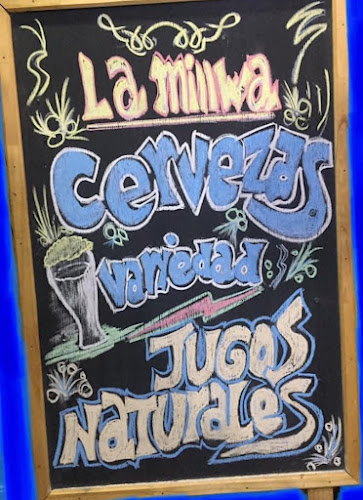 La millwa
Cervezas
variedad
JUGOS
NATURALES